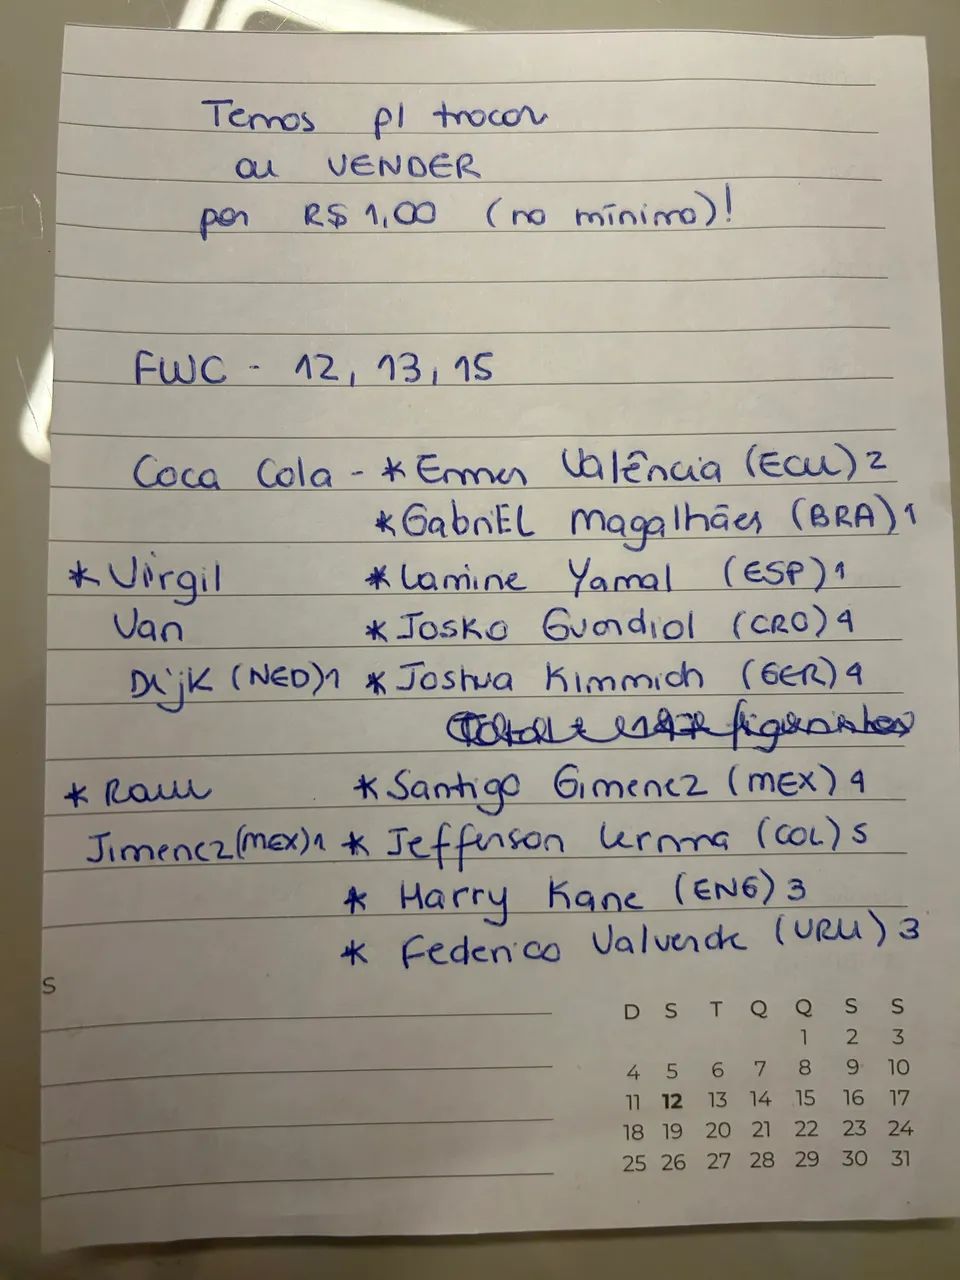 Temos p/ trocar
ou VENDER
por R$ 1,00 (no mínimo)!
FWC - 12, 13, 15
Coca Cola - * Enner Valência (ECU) 2
* GabriEL Magalhães (BRA) 1
* Virgil * Lamine Yamal (ESP) 1
Van * Josko Gvardiol (CRO) 4
Dijk (NED) 1 * Joshua Kimmich (GER) 4
* Raul * Santigo Gimenez (MEX) 4
Jimenez (MEX) 1 * Jefferson Lerma (COL) 5
* Harry Kane (ENG) 3
* Federico Valverde (URU) 3
S
D S T Q Q S S
1 2 3
4 5 6 7 8 9 10
11 12 13 14 15 16 17
18 19 20 21 22 23 24
25 26 27 28 29 30 31